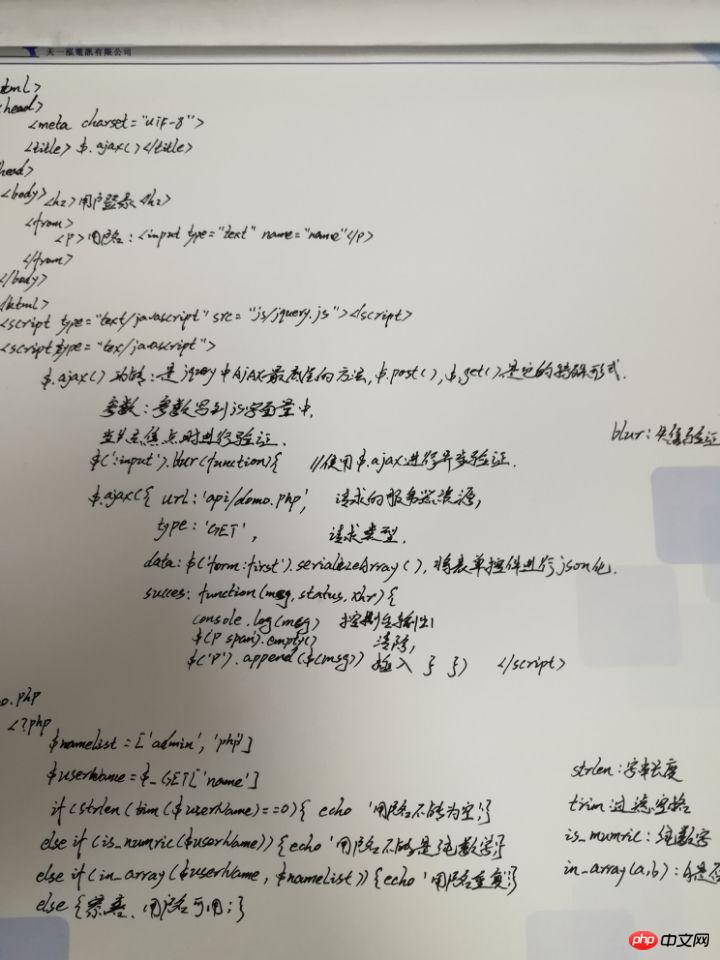 天一泓電訊有限公司
tml>
<head>
<meta charset="utf-8">
<title>$.ajax()</title>
head>
<body> <h2>用户登录<h2>
<from>
<p>用户名:<input type="text" name="name"</p>
</from>
</body>
</html>
<script type="text/javascript" src="js/jquery.js"></script>
<script type="tex/javascript">
$.ajax() 总结:是jquery中AJAX最底层的方法,$.post(),$.get()是它的特殊形式.
参数:参数写到js字面量中.
当失去焦点时进行验证. blur:失焦验证
$(':input').blur(function){ //使用$.ajax进行异步验证.
$.ajax({ url:'api/demo.php', 请求的服务器资源,
type:'GET', 请求类型.
data:$('form:first').serializeArray(), 将表单控件进行json化.
succes: function(msg,status,xhr){
console.log(msg) 控制台输出
$(P span).empty() 清除,
$('P').append($(msg)) 插入 } }) </script>
o.php
<?php
$namelist=['admin','php']
$userName=$_GET['name'] strlen:字串长度
if(strlen(tim($userName)==0){ echo '用户名不能为空';} trim 过滤空格
else if(is_numric($userName)){echo'用户名不能是纯数字;} is_numric:纯数字
else if(in_array($userName,$namelist)){echo'用户名重复';} in_array(a,b):
else { 用户名可用;}
php 中文网